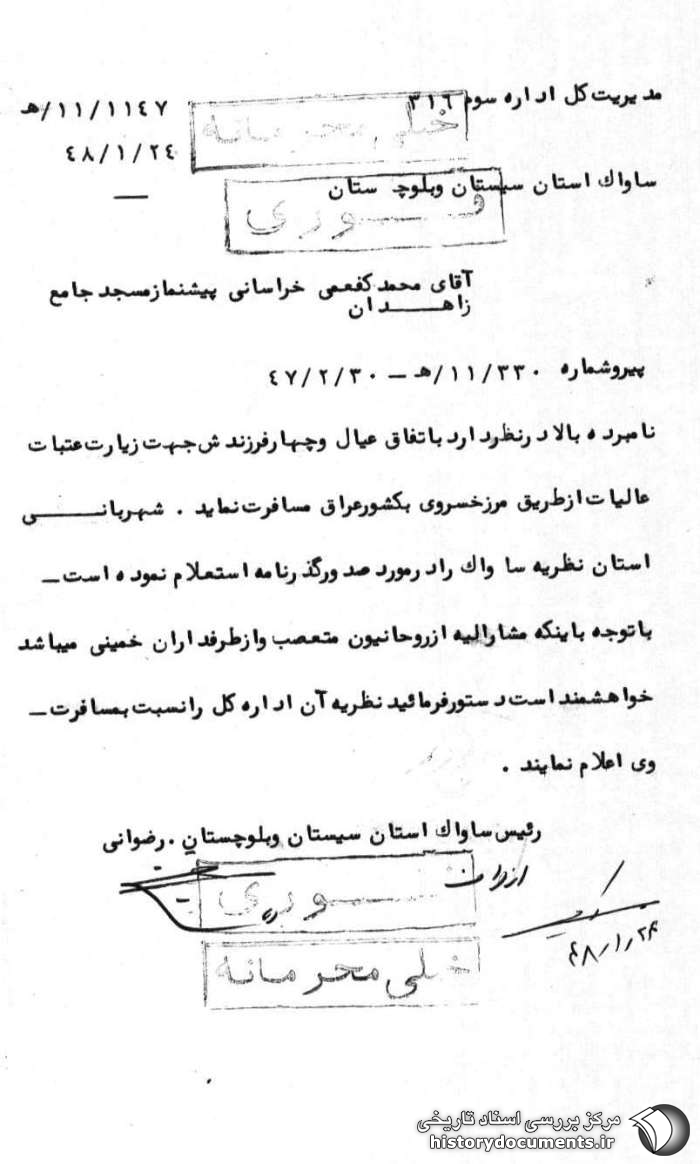 مدیریت کل اداره سوم ۳۱۶
۱۱/۱۱۴۷/هـ
خیلی محرمانه
۴۸/۱/۲۴
ساواک استان سیستان وبلوچستان
فوری
آقای محمد کفعمی خراسانی پیشنماز مسجد جامع
زاهدان
پیرو شماره ۱۱/۳۳۰/هـ – ۴۷/۲/۳۰
نامبرده بالا درنظر دارد باتفاق عیال وچهار فرزندش جهت زیارت عتبات
عالیات ازطریق مرز خسروی بکشور عراق مسافرت نماید . شهربانی
استان نظریه ساواک را درمورد صدور گذرنامه استعلام نموده است –
باتوجه باینکه مشارالیه ازروحانیون متعصب وازطرفداران خمینی میباشد
خواهشمند است دستور فرمائید نظریه آن اداره کل را نسبت بمسافرت –
وی اعلام نمایند .
رئیس ساواک استان سیستان وبلوچستان . رضوانی
فوری
۴۸/۱/۲۶
خیلی محرمانه
مرکز بررسی اسناد تاریخی
historydocuments.ir